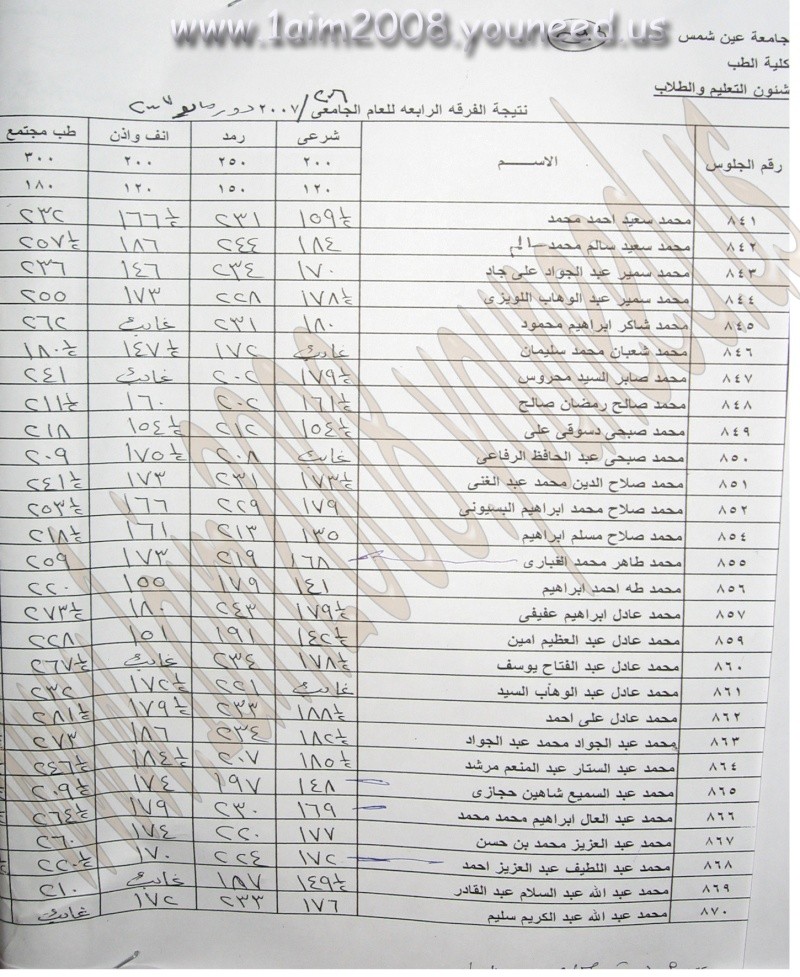 www.1aim2008.youneed.us
جامعة عين شمس
كلية الطب
شئون التعليم والطلاب
نتيجة الفرقه الرابعه للعام الجامعى ٢٠٠٦/٢٠٠٧ دور مايو ٢٠٠٧
رقم الجلوس الاســـــم شرعى رمد انف واذن طب مجتمع
٢٠٠ ٢٥٠ ٢٠٠ ٣٠٠
١٢٠ ١٥٠ ١٢٠ ١٨٠
٨٤١ محمد سعيد احمد محمد ١٥٩½ ٢٣١ ١٦٦½ ٢٣٢
٨٤٢ محمد سعيد سالم محمد سالم ١٨٤ ٢٤٤ ١٨٦ ٢٥٧½
٨٤٣ محمد سمير عبد الجواد على جاد ١٧٠ ٢٣٤ ١٤٦ ٢٣٦
٨٤٤ محمد سمير عبد الوهاب اللويزى ١٧٨½ ٢٢٨ ١٧٣ ٢٥٥
٨٤٥ محمد شاكر ابراهيم محمود ١٨٠ ٢٣١ غائب ٢٦٢
٨٤٦ محمد شعبان محمد سليمان غائب ١٧٢ ١٤٧½ ١٨٠½
٨٤٧ محمد صابر السيد محروس ١٧٩½ ٢٠٢ غائب ٢٤١
٨٤٨ محمد صالح رمضان صالح ١٦١½ ٢٠٢ ١٦٠ ٢١١½
٨٤٩ محمد صبحى دسوقى على ١٥٤½ ٢١٢ ١٥٤½ ٢١٨
٨٥٠ محمد صبحى عبد الحافظ الرفاعى غائب ٢٠٨ ١٧٥½ ٢٠٩
٨٥١ محمد صلاح الدين محمد عبد الغنى ١٧٣½ ٢٣١ ١٧٣ ٢٤١½
٨٥٢ محمد صلاح محمد ابراهيم البسيونى ١٧٩ ٢٢٩ ١٦٦ ٢٥٣½
٨٥٤ محمد صلاح مسلم ابراهيم ١٣٥ ٢١٣ ١٦١ ٢١٨½
٨٥٥ محمد طاهر محمد الغبارى ١٦٨ ٢١٩ ١٧٣ ٢٥٩
٨٥٦ محمد طه احمد ابراهيم ١٤١ ١٧٩ ١٥٥ ٢٢٠
٨٥٧ محمد عادل ابراهيم عفيفى ١٧٩½ ٢٤٣ ١٨٠ ٢٧٣½
٨٥٩ محمد عادل عبد العظيم امين ١٤٢½ ١٩١ ١٥١ ٢٢٨
٨٦٠ محمد عادل عبد الفتاح يوسف ١٧٨½ ٢٣٤ غائب ٢٦٧½
٨٦١ محمد عادل عبد الوهاب السيد غائب ٢٢١ ١٧٢½ ٢٣٢
٨٦٢ محمد عادل على احمد ١٨٨½ ٢٣٣ ١٧٩½ ٢٨١½
٨٦٣ محمد عبد الجواد محمد عبد الجواد ١٨٢½ ٢٣٤ ١٨٦ ٢٧٣
٨٦٤ محمد عبد الستار عبد المنعم مرشد ١٨٥½ ٢٠٧ ١٨٤½ ٢٤٦½
٨٦٥ محمد عبد السميع شاهين حجازى ١٤٨ ١٩٧ ١٧٤ ٢٠٩½
٨٦٦ محمد عبد العال ابراهيم محمد محمد ١٦٩ ٢٣٠ ١٧٩ ٢٦٤½
٨٦٧ محمد عبد العزيز محمد بن حسن ١٧٧ ٢٢٠ ١٧٤ ٢٦٠
٨٦٨ محمد عبد اللطيف عبد العزيز احمد ١٧٢ ٢٢٤ ١٧٠ ٢٢٠½
٨٦٩ محمد عبد الله عبد السلام عبد القادر ١٤٩½ ١٨٧ غائب ٢١٠
٨٧٠ محمد عبد الله عبد الكريم سليم ١٧٦ ٢٣٣ ١٧٢ غائب